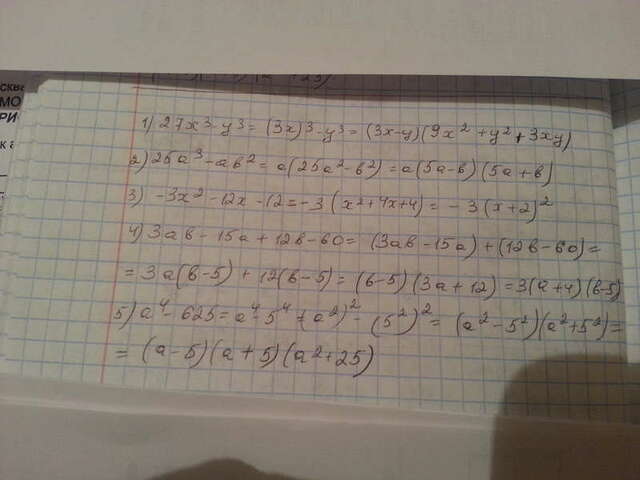 сква
МО
РИ
1) 27x³-y³ = (3x)³-y³ = (3x-y)(9x²+y²+3xy)
2) 25a³-ab² = a(25a²-b²) = a(5a-b)(5a+b)
3) -3x²-12x-12 = -3(x²+4x+4) = -3(x+2)²
4) 3ab-15a+12b-60 = (3ab-15a)+(12b-60) =
= 3a(b-5)+12(b-5) = (b-5)(3a+12) = 3(a+4)(b-5)
5) a⁴-625 = a⁴-5⁴ = (a²)²-(5²)² = (a²-5²)(a²+5²) =
= (a-5)(a+5)(a²+25)